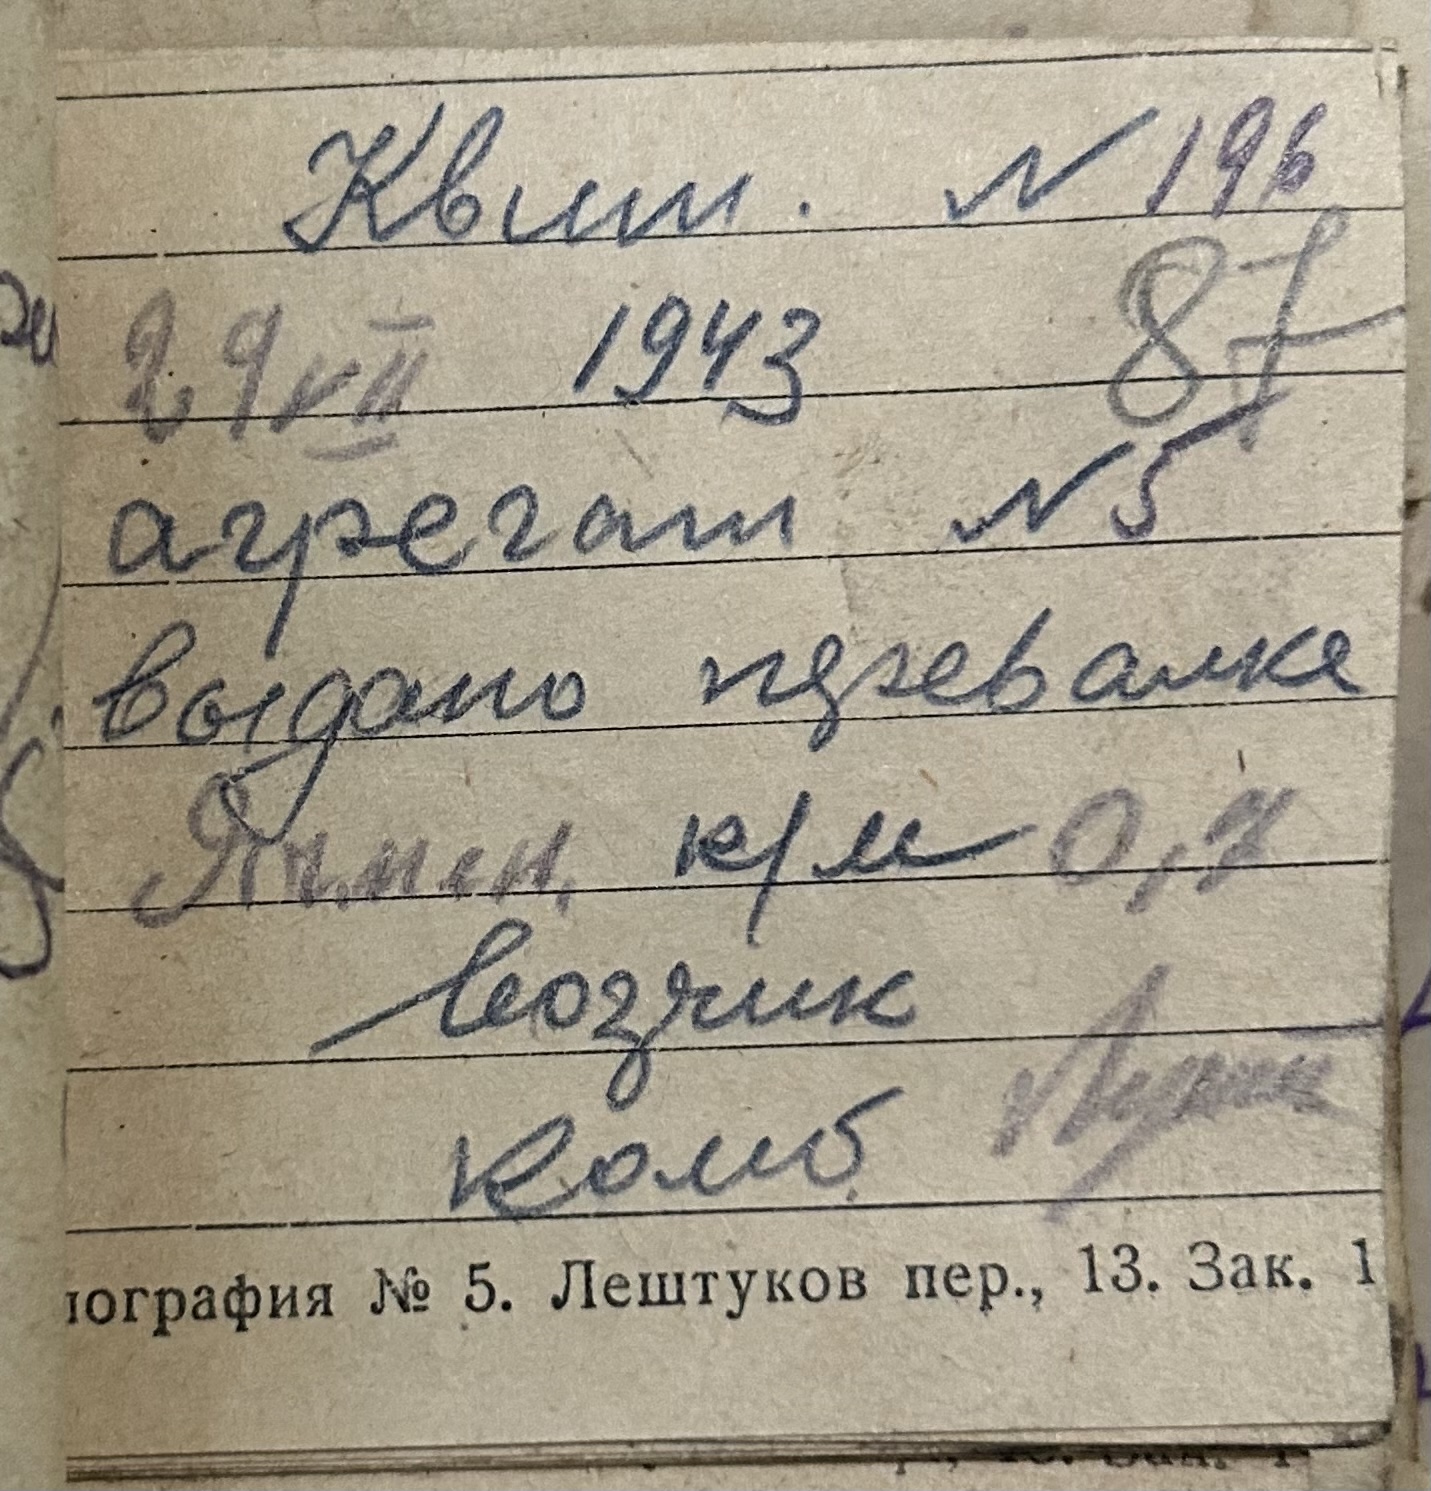 Квит. N 196
29 VII 1943 87
агрегат N 5
выдано перевалке
Ячмен. к/м 0,7
возчик
Комб.
пография № 5. Лештуков пер., 13. Зак. 1